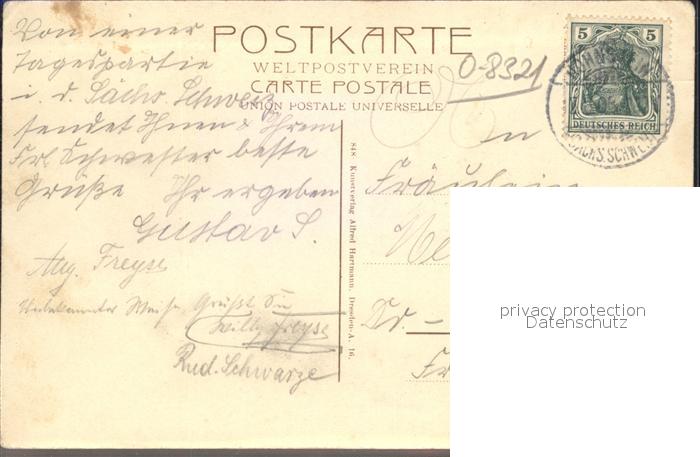 POSTKARTE
WELTPOSTVEREIN
CARTE POSTALE
UNION POSTALE UNIVERSELLE
0-8321
5 5
DEUTSCHES REICH
SÄCHS. SCHWEIZ
Von einer
Tagespartie
i. d. Sächs. Schweiz
sendet Ihnen & Ihrem
Frl. Schwester beste
Grüße Ihr ergeben
Gustav S.
Aug. Freyse
Unbekannter Weise Grüßt Sie
Willy Freyse
Rud. Schwarze
848 Kunstverlag Alfred Hartmann, Dresden-A. 16.
Fräulein
Dr. –
Fr
privacy protection
Datenschutz